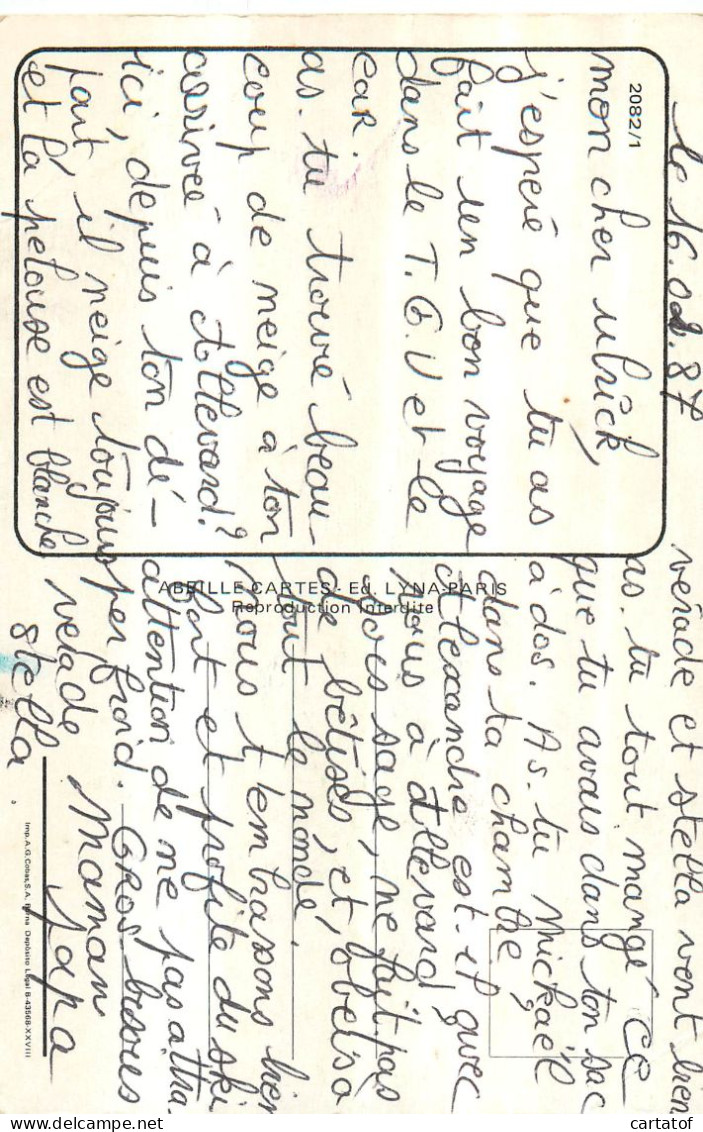 le 16.02.87
mon cher ulrick,
j'espère que tu as
fait un bon voyage
dans le T.G.V et le
car.
as-tu trouvé beau-
coup de neige à ton
arrivée à Allevard?
ici, depuis ton dé-
part, il neige toujours
et la pelouse est blanche
verade et stella vont bien
as-tu tout mangé ce
que tu avais dans ton sac
à dos. As-tu Mickaël
dans ta chambre
Alexandre est-il avec
vous à Allevard
sois sage, ne fait pas
de bêtises, et obeïs à
tout le monde.
nous t'embrassons bien
fort et profite du ski
attention de ne pas attra
per froid. GROS bisous
verade Maman papa
stella.
2082/1
ABEILLE-CARTES - Ed. LYNA-PARIS
Reproduction Interdite
Imp. A.G. Cobas, S.A. Depósito Legal B-43568-XXVIII
cartatof